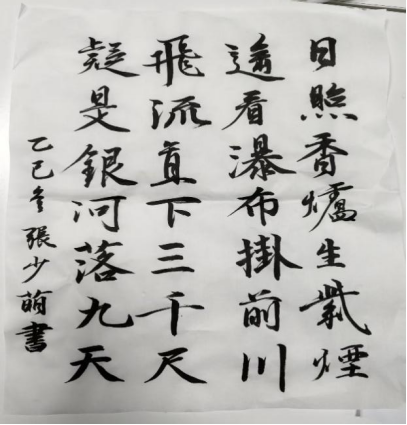 日照香爐生紫煙
遙看瀑布掛前川
飛流直下三千尺
疑是銀河落九天
乙巳冬張少萌書